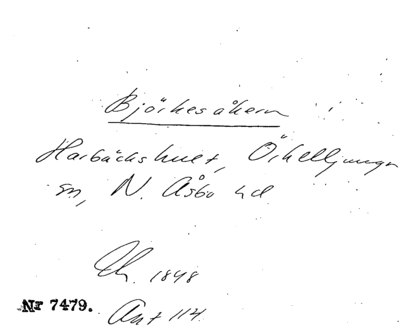 Björkesåkern
Harbäckshult, Örkelljunga
sn, N. Åsbo hd
Ch. 1848
Nr 7479.
Ant 114.